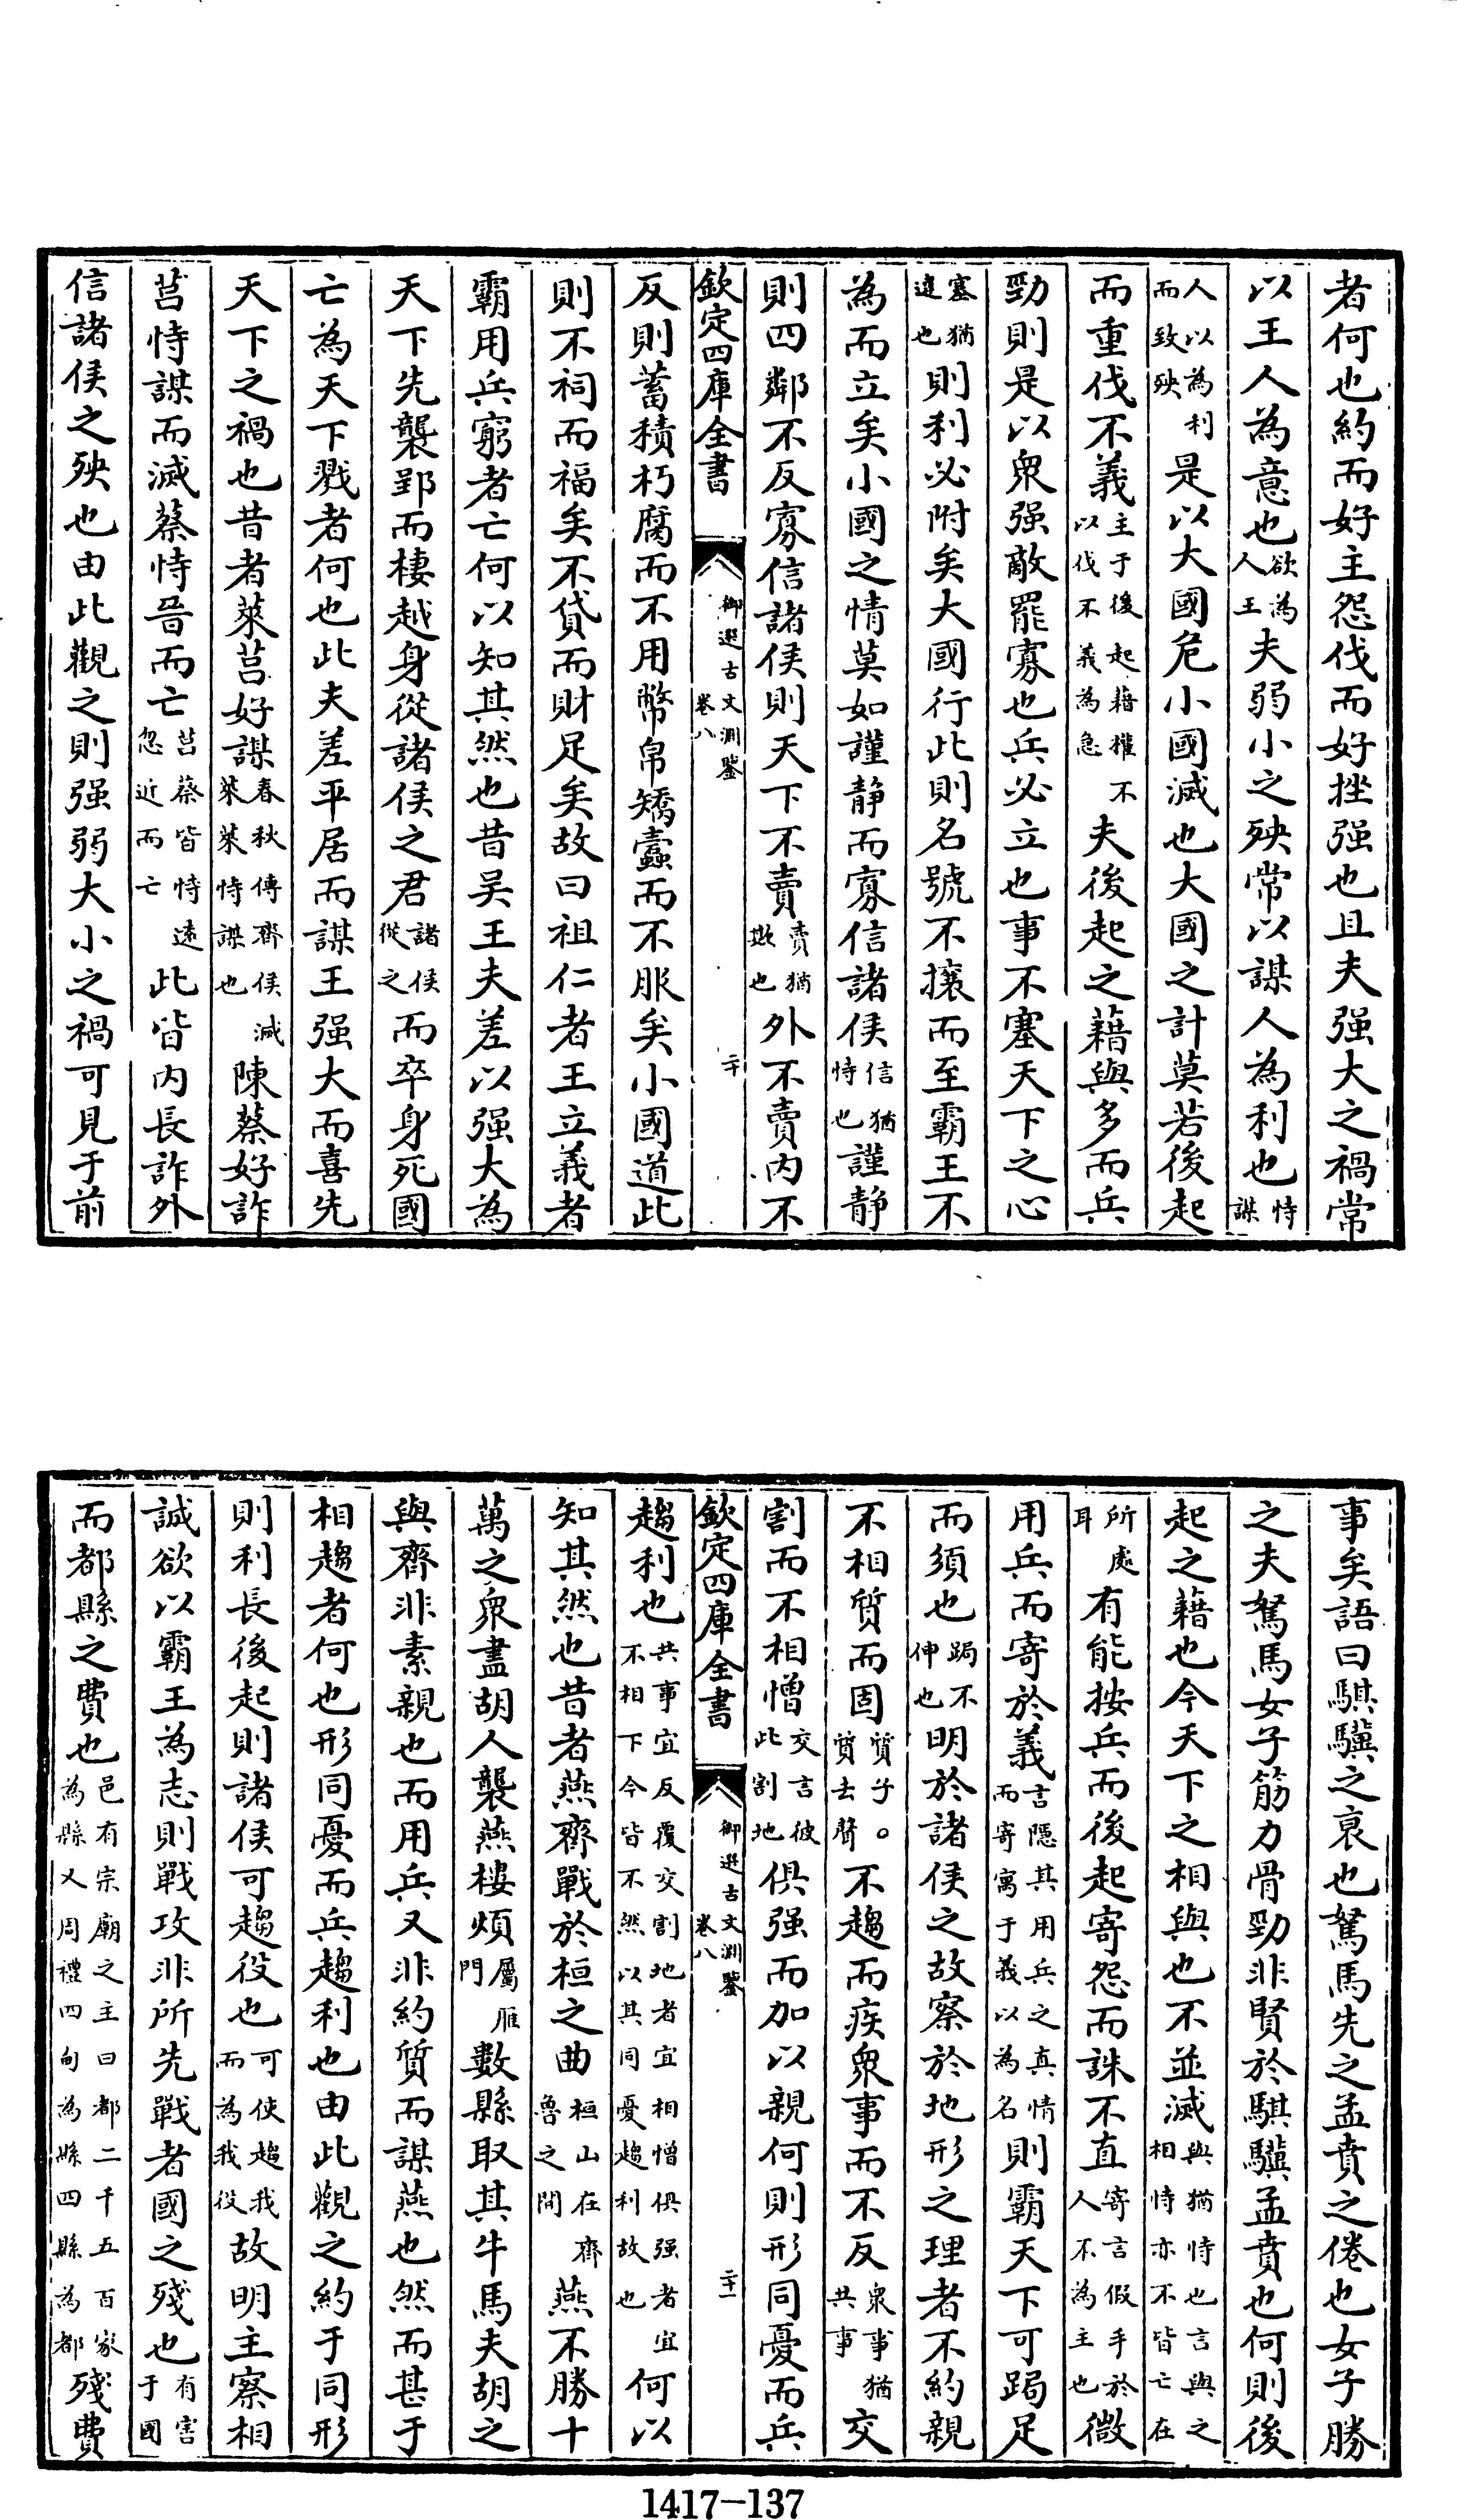 者何也約而好主怨伐而好挫强也且夫强大之禍常
以王人為意也欲為人王夫弱小之殃常以謀人為利也恃謀
人以為利而致殃是以大國危小國滅也大國之計莫若後起
而重伐不義主于後起藉權不以伐不義為急夫後起之藉與多而兵
勁則是以衆强敵罷寡也兵必立也事不塞天下之心
塞猶違也則利必附矣大國行此則名號不攘而至霸王不
為而立矣小國之情莫如謹靜而寡信諸侯信猶恃也謹靜
則四鄰不反寡信諸侯則天下不賣賣猶欺也外不賣内不
欽定四庫全書 御選古文淵鑒 卷八 二十
反則蓄積朽腐而不用幣帛矯蠹而不服矣小國道此
則不祠而福矣不貸而財足矣故曰祖仁者王立義者
霸用兵窮者亡何以知其然也昔吴王夫差以强大為
天下先襲郢而棲越身從諸侯之君諸侯從之而卒身死國
亡為天下戮者何也此夫差平居而謀王强大而喜先
天下之禍也昔者萊莒好謀春秋傳齊侯滅萊萊恃謀也陳蔡好詐
莒恃謀而滅蔡恃晉而亡莒蔡皆恃遠忽近而亡此皆内長詐外
信諸侯之殃也由此觀之則强弱大小之禍可見于前
事矣語曰騏驥之衰也駑馬先之孟賁之倦也女子勝
之夫駑馬女子筋力骨勁非賢於騏驥孟賁也何則後
起之藉也今天下之相與也不並滅與猶恃也言與之相恃亦不皆亡在
所處耳有能按兵而後起寄怨而誅不直寄言假手於人不為主也微
用兵而寄於義言隱其用兵之真情而寄寓于義以為名則霸天下可跼足
而須也跼不伸也明於諸侯之故察於地形之理者不約親
不相質而固質子。質去聲不趨而疾衆事而不反衆事猶共事交
割而不相憎交言彼此割地俱强而加以親何則形同憂而兵
欽定四庫全書 御選古文淵鑒 卷八 二十一
趨利也共事宜反覆交割地者宜相憎俱强者宜不相下今皆不然以其同憂趨利故也何以
知其然也昔者燕齊戰於桓之曲桓山在齊魯之間燕不勝十
萬之衆盡胡人襲燕樓煩屬雁門數縣取其牛馬夫胡之
與齊非素親也而用兵又非約質而謀燕也然而甚于
相趨者何也形同憂而兵趨利也由此觀之約于同形
則利長後起則諸侯可趨役也可使趨我而為我役故明主察相
誠欲以霸王為志則戰攻非所先戰者國之殘也有害于國
而都縣之費也邑有宗廟之主曰都二千五百家為縣又周禮四甸為縣四縣為都殘費
1417-137